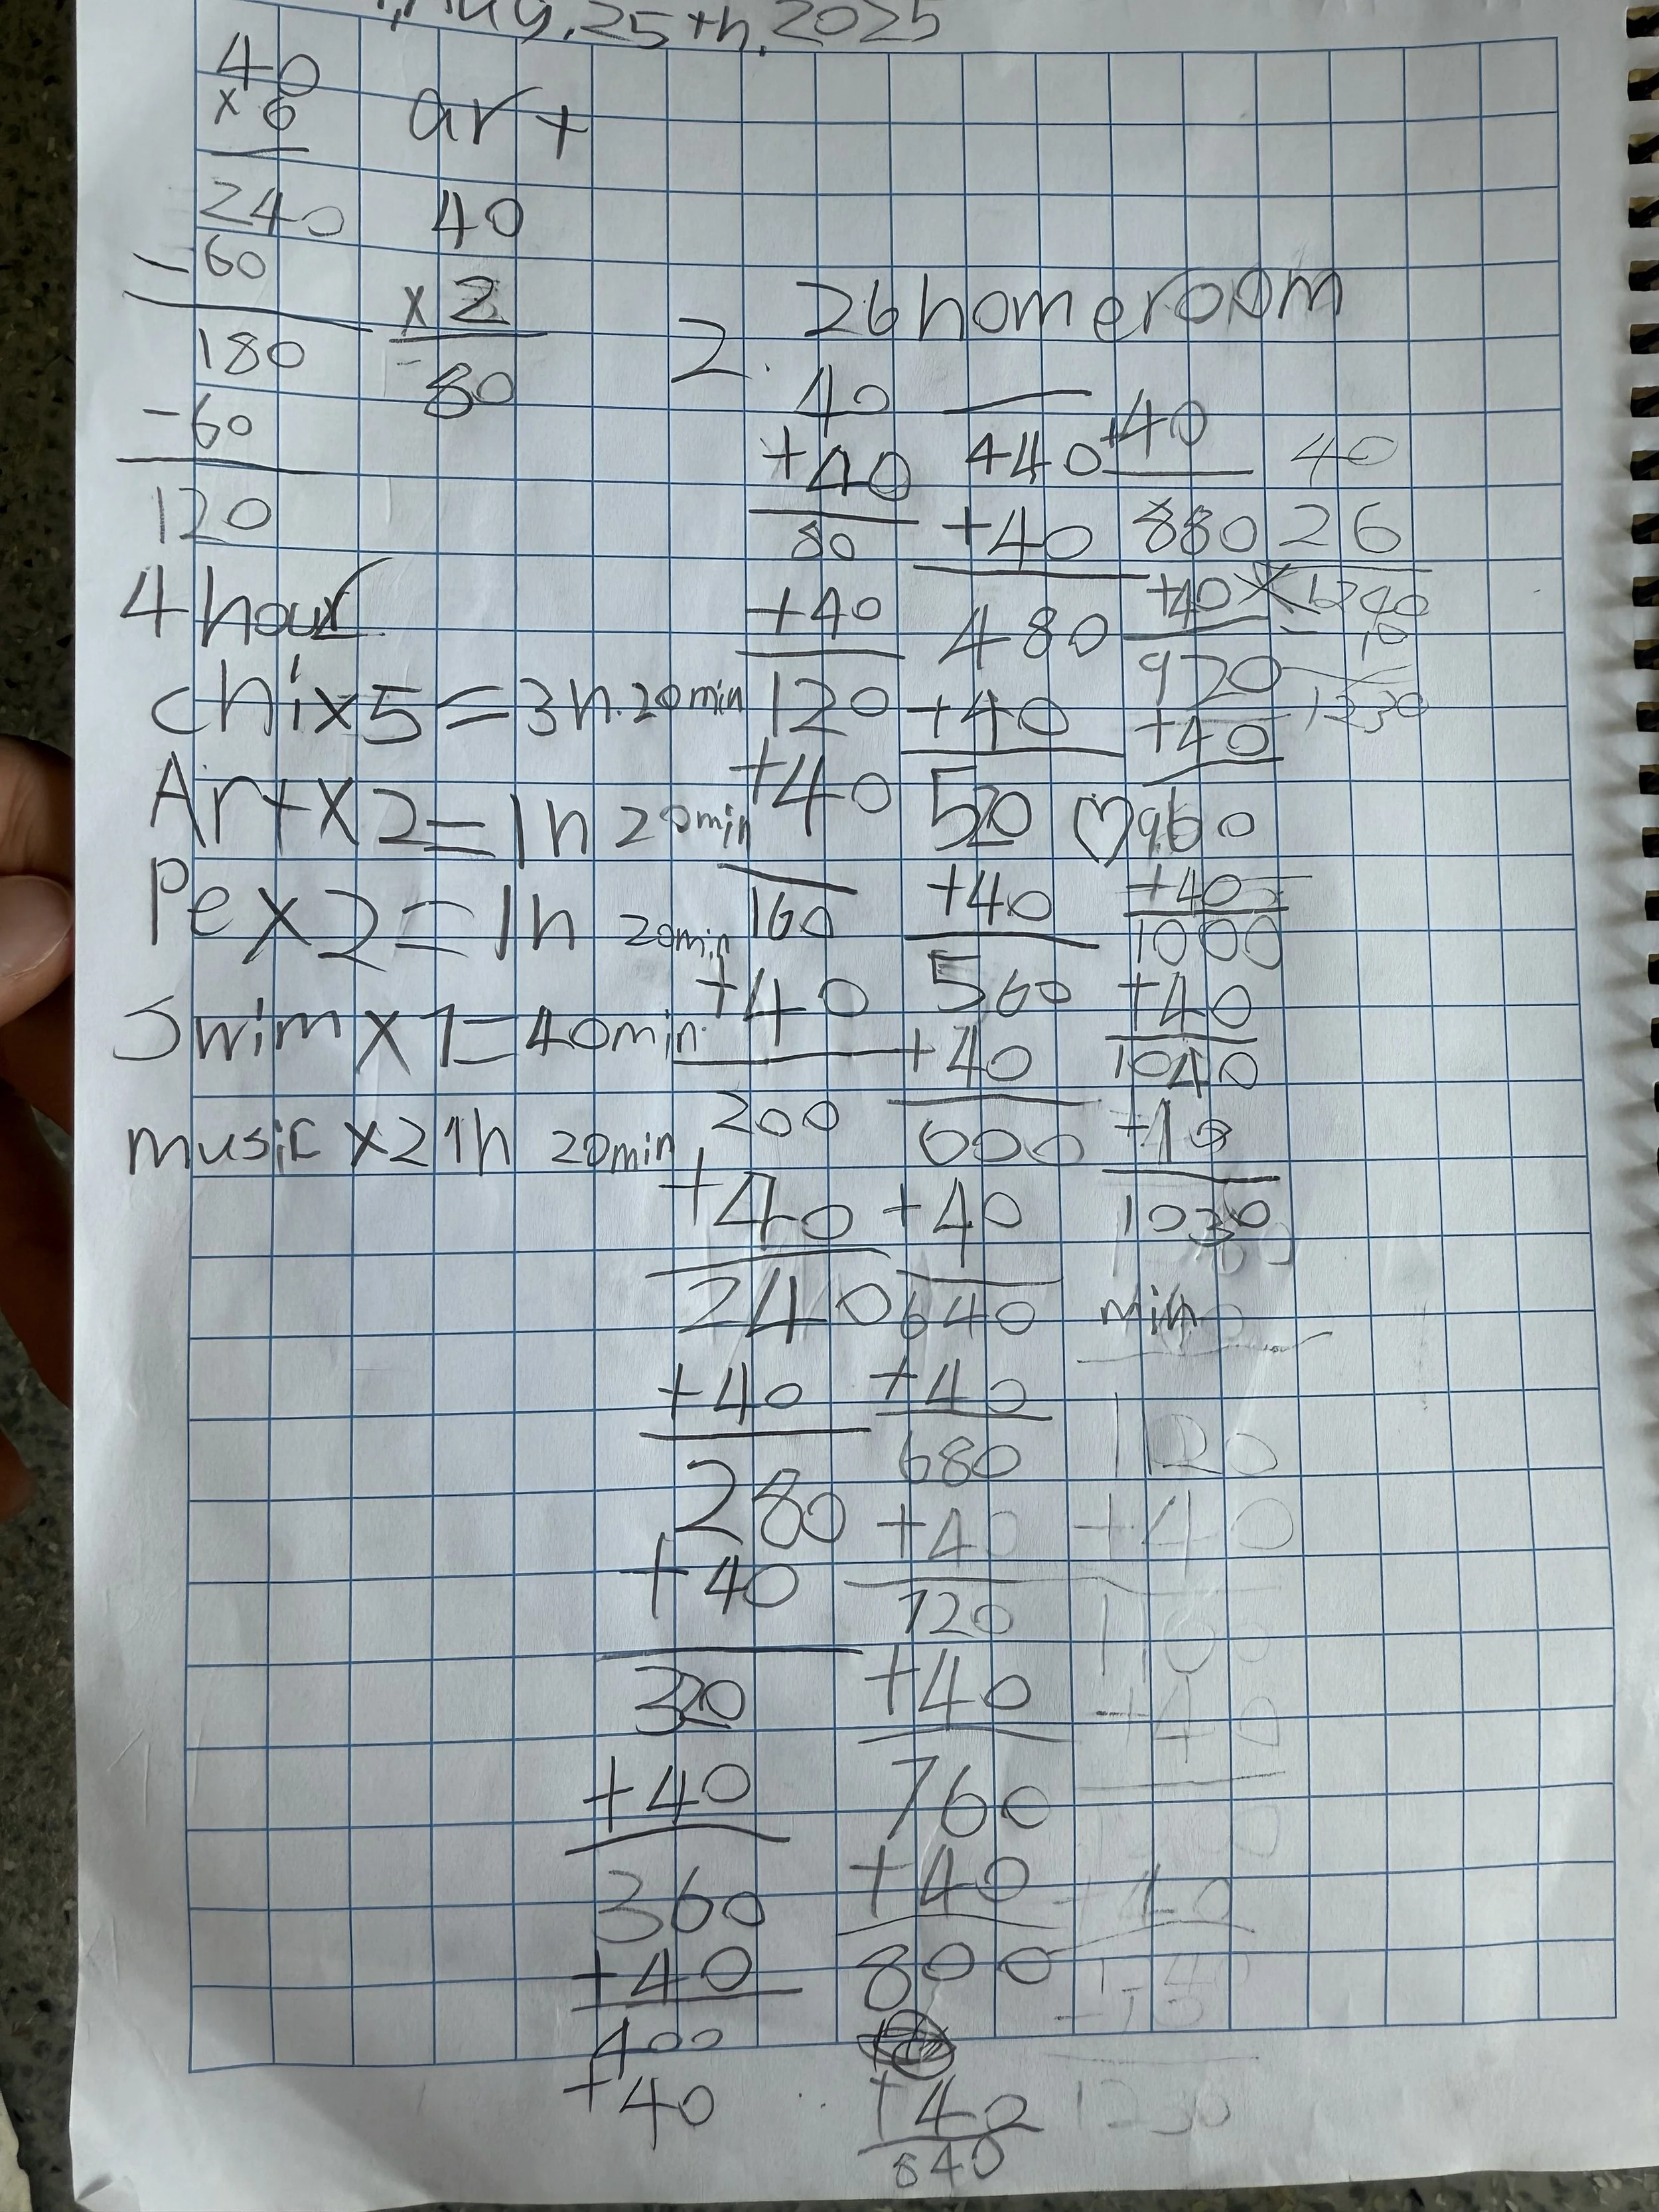 Aug. 25th. 2025
40
× 6
240
-60
180
-60
120
art
40
× 2
80
4 hour
chi×5=3h.20min
Art×2=1h 20min
Pe×2=1h 20min
Swim×1=40min
music ×2 1h 20min
2. 26 homeroom
40
+40
80
+40
120
+40
160
+40
200
+40
240
+40
280
+40
320
+40
360
+40
400
+40
440
+40
480
+40
520
+40
560
+40
600
+40
640
+40
680
+40
720
+40
760
+40
800
+40
840
+40
880
+40
920
+40
♡960
+40
1000
+40
1040
-10
1030
min
40
26
× 1240
- 10
1230
1120
+40
1160
+40
+40
-10
1230